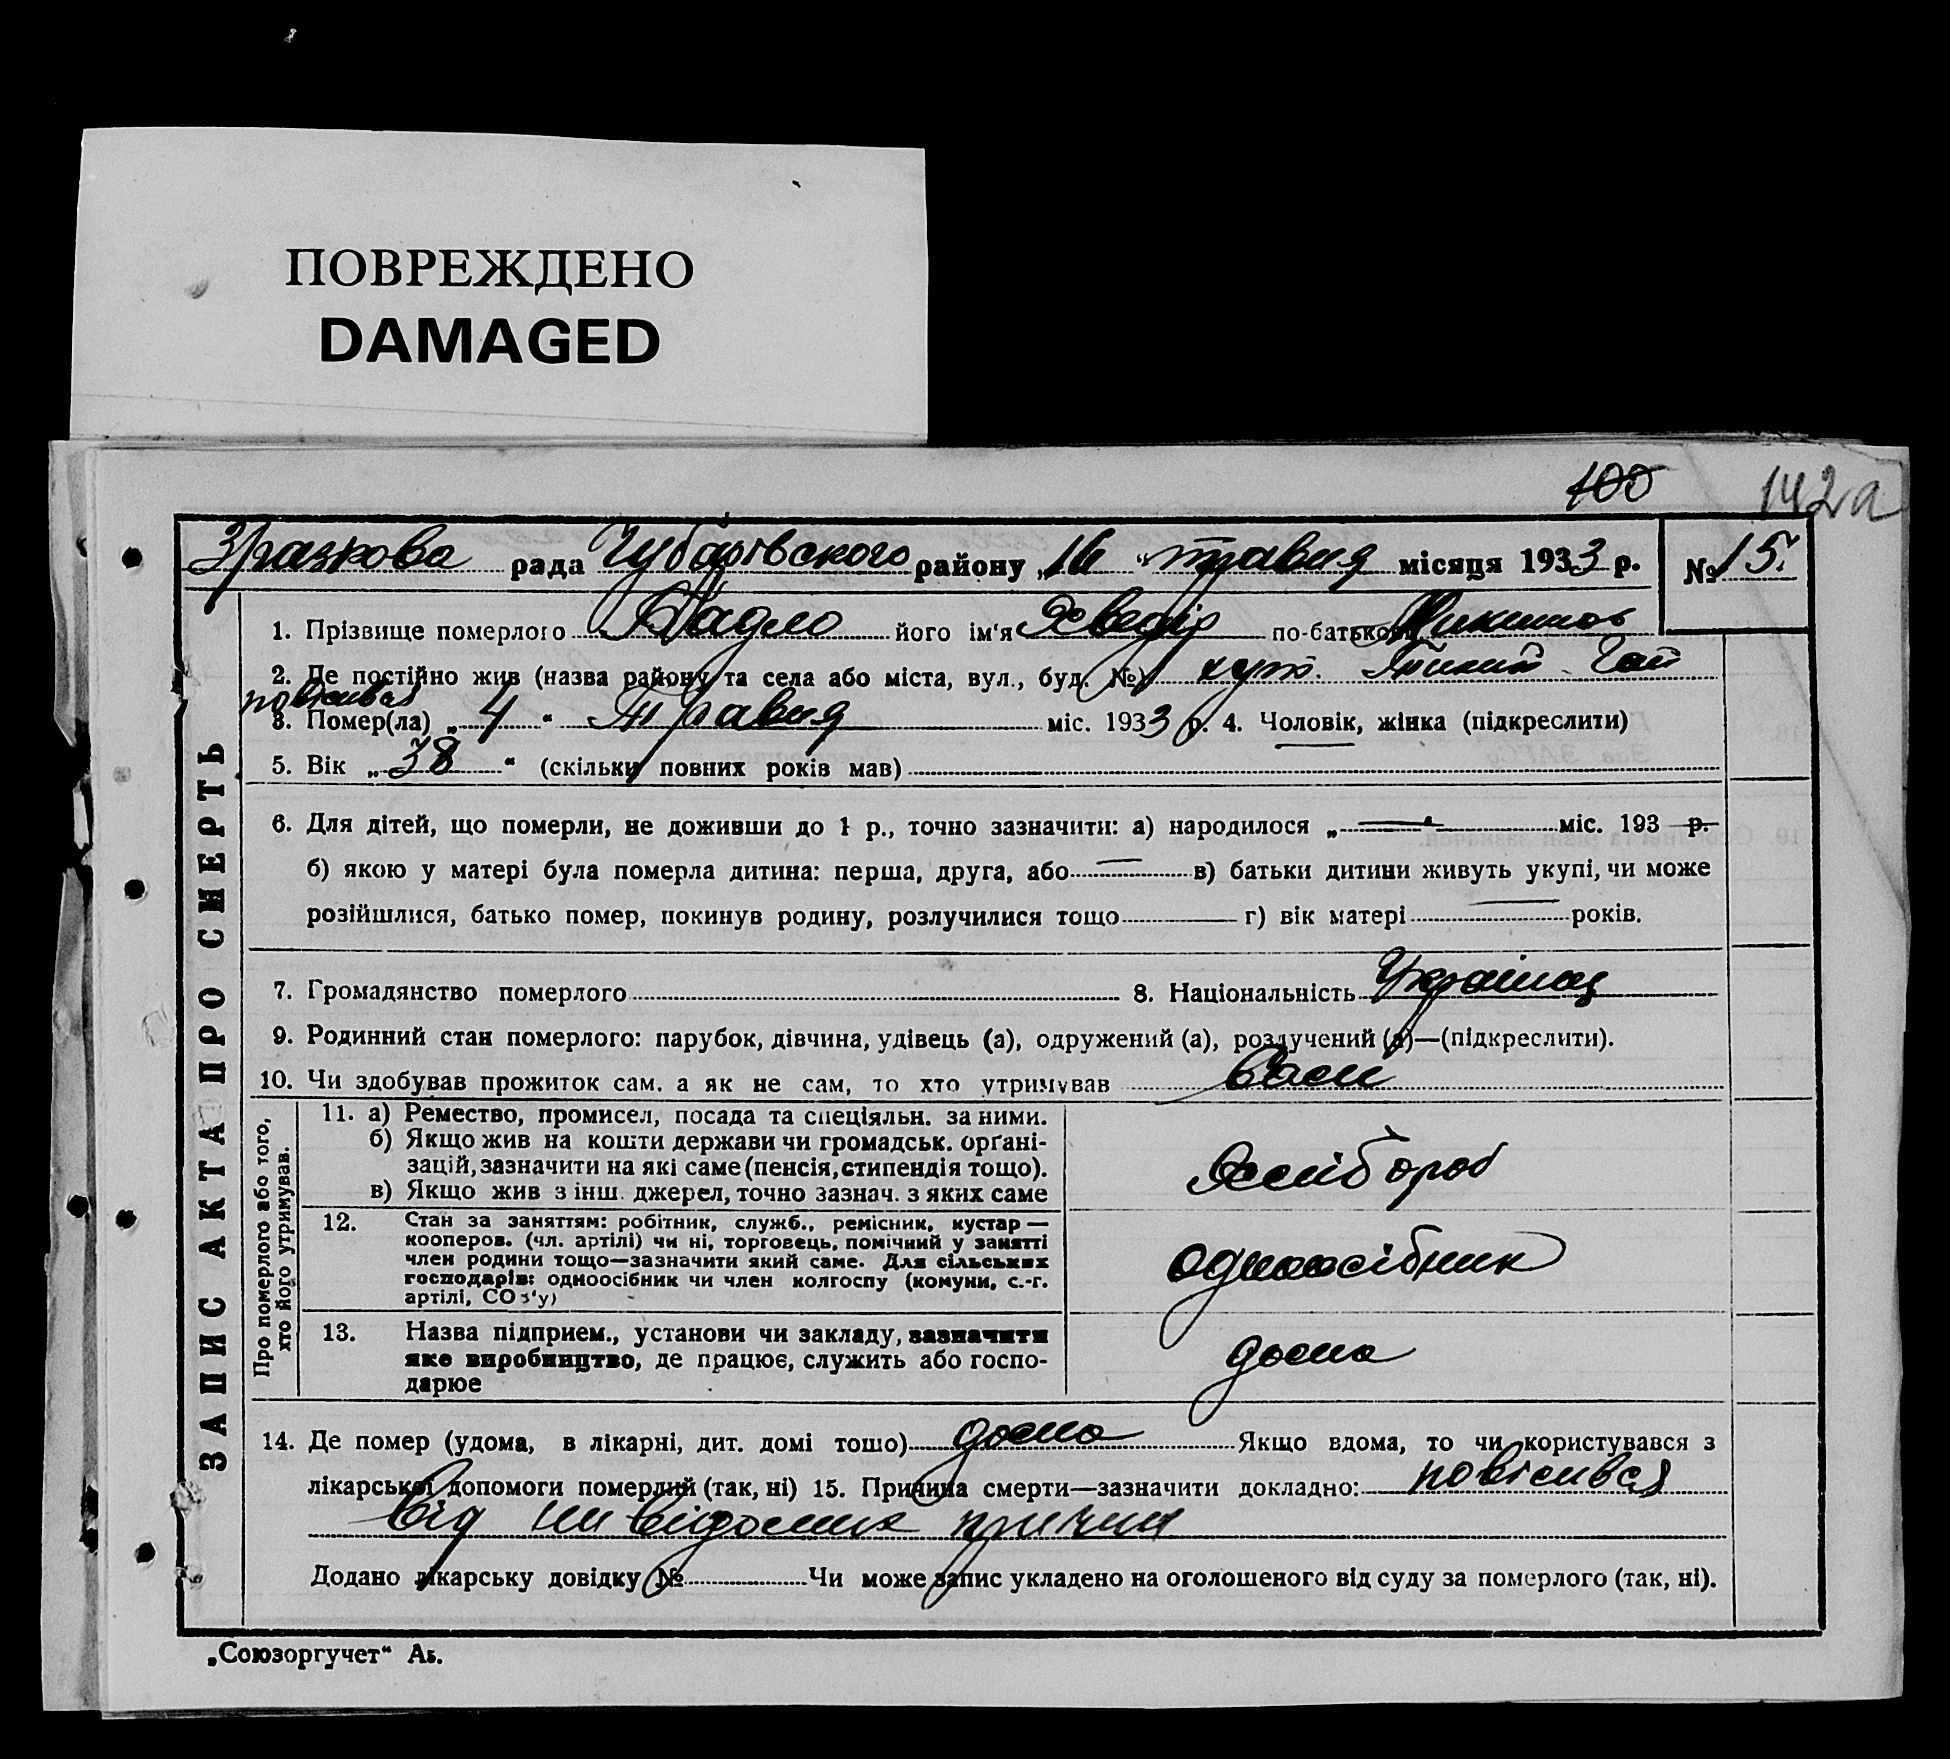 ПОВРЕЖДЕНО
DAMAGED
100
142а
Зразкова рада Чубарівського району „16 “ травня місяця 1933 р. № 15.
1. Прізвище померлого Падло його ім'я Хведір по-батькові
2. Де постійно жив (назва району та села або міста, вул., буд. №) хут. Гай
повісився
3. Помер(ла) „ 4 “ Травня міс. 1933 р. 4. Чоловік, жінка (підкреслити)
5. Вік „ 38 “ (скільки повних років мав)
6. Для дітей, що померли, не доживши до 1 р., точно зазначити: а) народилося „ — “ — міс. 193 — р.
б) якою у матері була померла дитина: перша, друга, або — в) батьки дитини живуть укупі, чи може
розійшлися, батько помер, покинув родину, розлучилися тощо — г) вік матері — років.
7. Громадянство померлого 8. Національність Українец
9. Родинний стан померлого: парубок, дівчина, удівець (а), одружений (а), розлучений (а)—(підкреслити).
10. Чи здобував прожиток сам, а як не сам, то хто утримував Сам
ЗАПИС АКТА ПРО СМЕРТЬ
Про померлого або того,
хто його утримував.
11. а) Ремество, промисел, посада та спеціяльн. за ними.
б) Якщо жив на кошти держави чи громадськ. орґані-
зацій, зазначити на які саме (пенсія, стипендія тощо).
в) Якщо жив з інш. джерел, точно зазнач. з яких саме
Хлібороб
12. Стан за заняттям: робітник, служб., ремісник, кустар —
кооперов. (чл. артілі) чи ні, торговець, помічний у занятті
член родини тощо—зазначити який саме. Для сільських
господарів: одноосібник чи член колгоспу (комуни, с.-г.
артілі, СОЗ'у)
одноосібник
13. Назва підприєм., установи чи закладу, зазначити
яке виробництво, де працює, служить або госпо-
дарює
дома
14. Де помер (удома, в лікарні, дит. домі тощо) дома Якщо вдома, то чи користувався з
лікарської допомоги померлий (так, ні) 15. Причина смерти—зазначити докладно: повісився
від невидомих причин
Додано лікарську довідку № Чи може запис укладено на оголошеного від суду за померлого (так, ні).
„Союзоргучет“ Аз.